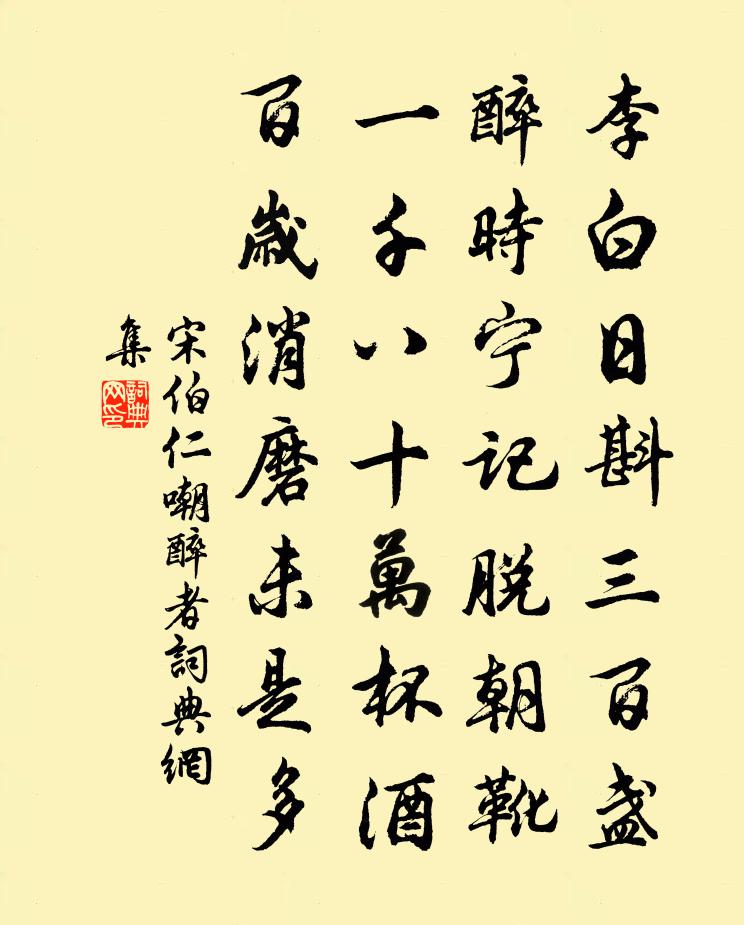 李白日斟三百盏
醉時宁記脱朝靴
一千八十萬杯酒
百歲消磨未是多
宋伯仁嘲醉者詞典網
集
詞典
网印